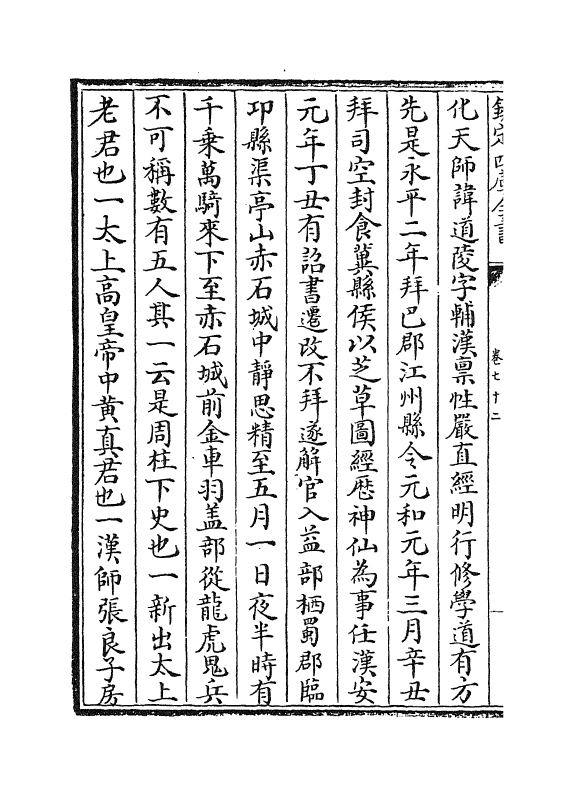 欽定四庫全書
卷七十二
化天師諱道陵字輔漢禀性嚴直經明行修學道有方
先是永平二年拜巴郡江州縣令元和元年三月辛丑
拜司空封食冀縣侯以芝草圖經歴神仙為事任漢安
元年丁丑有詔書遷改不拜遂解官入益部栖蜀郡臨
卭縣渠亭山赤石城中靜思精至五月一日夜半時有
千乗萬騎來下至赤石城前金車羽盖部從龍虎鬼兵
不可稱數有五人其一云是周柱下史也一新出太上
老君也一太上高皇帝中黄真君也一漢師張良子房